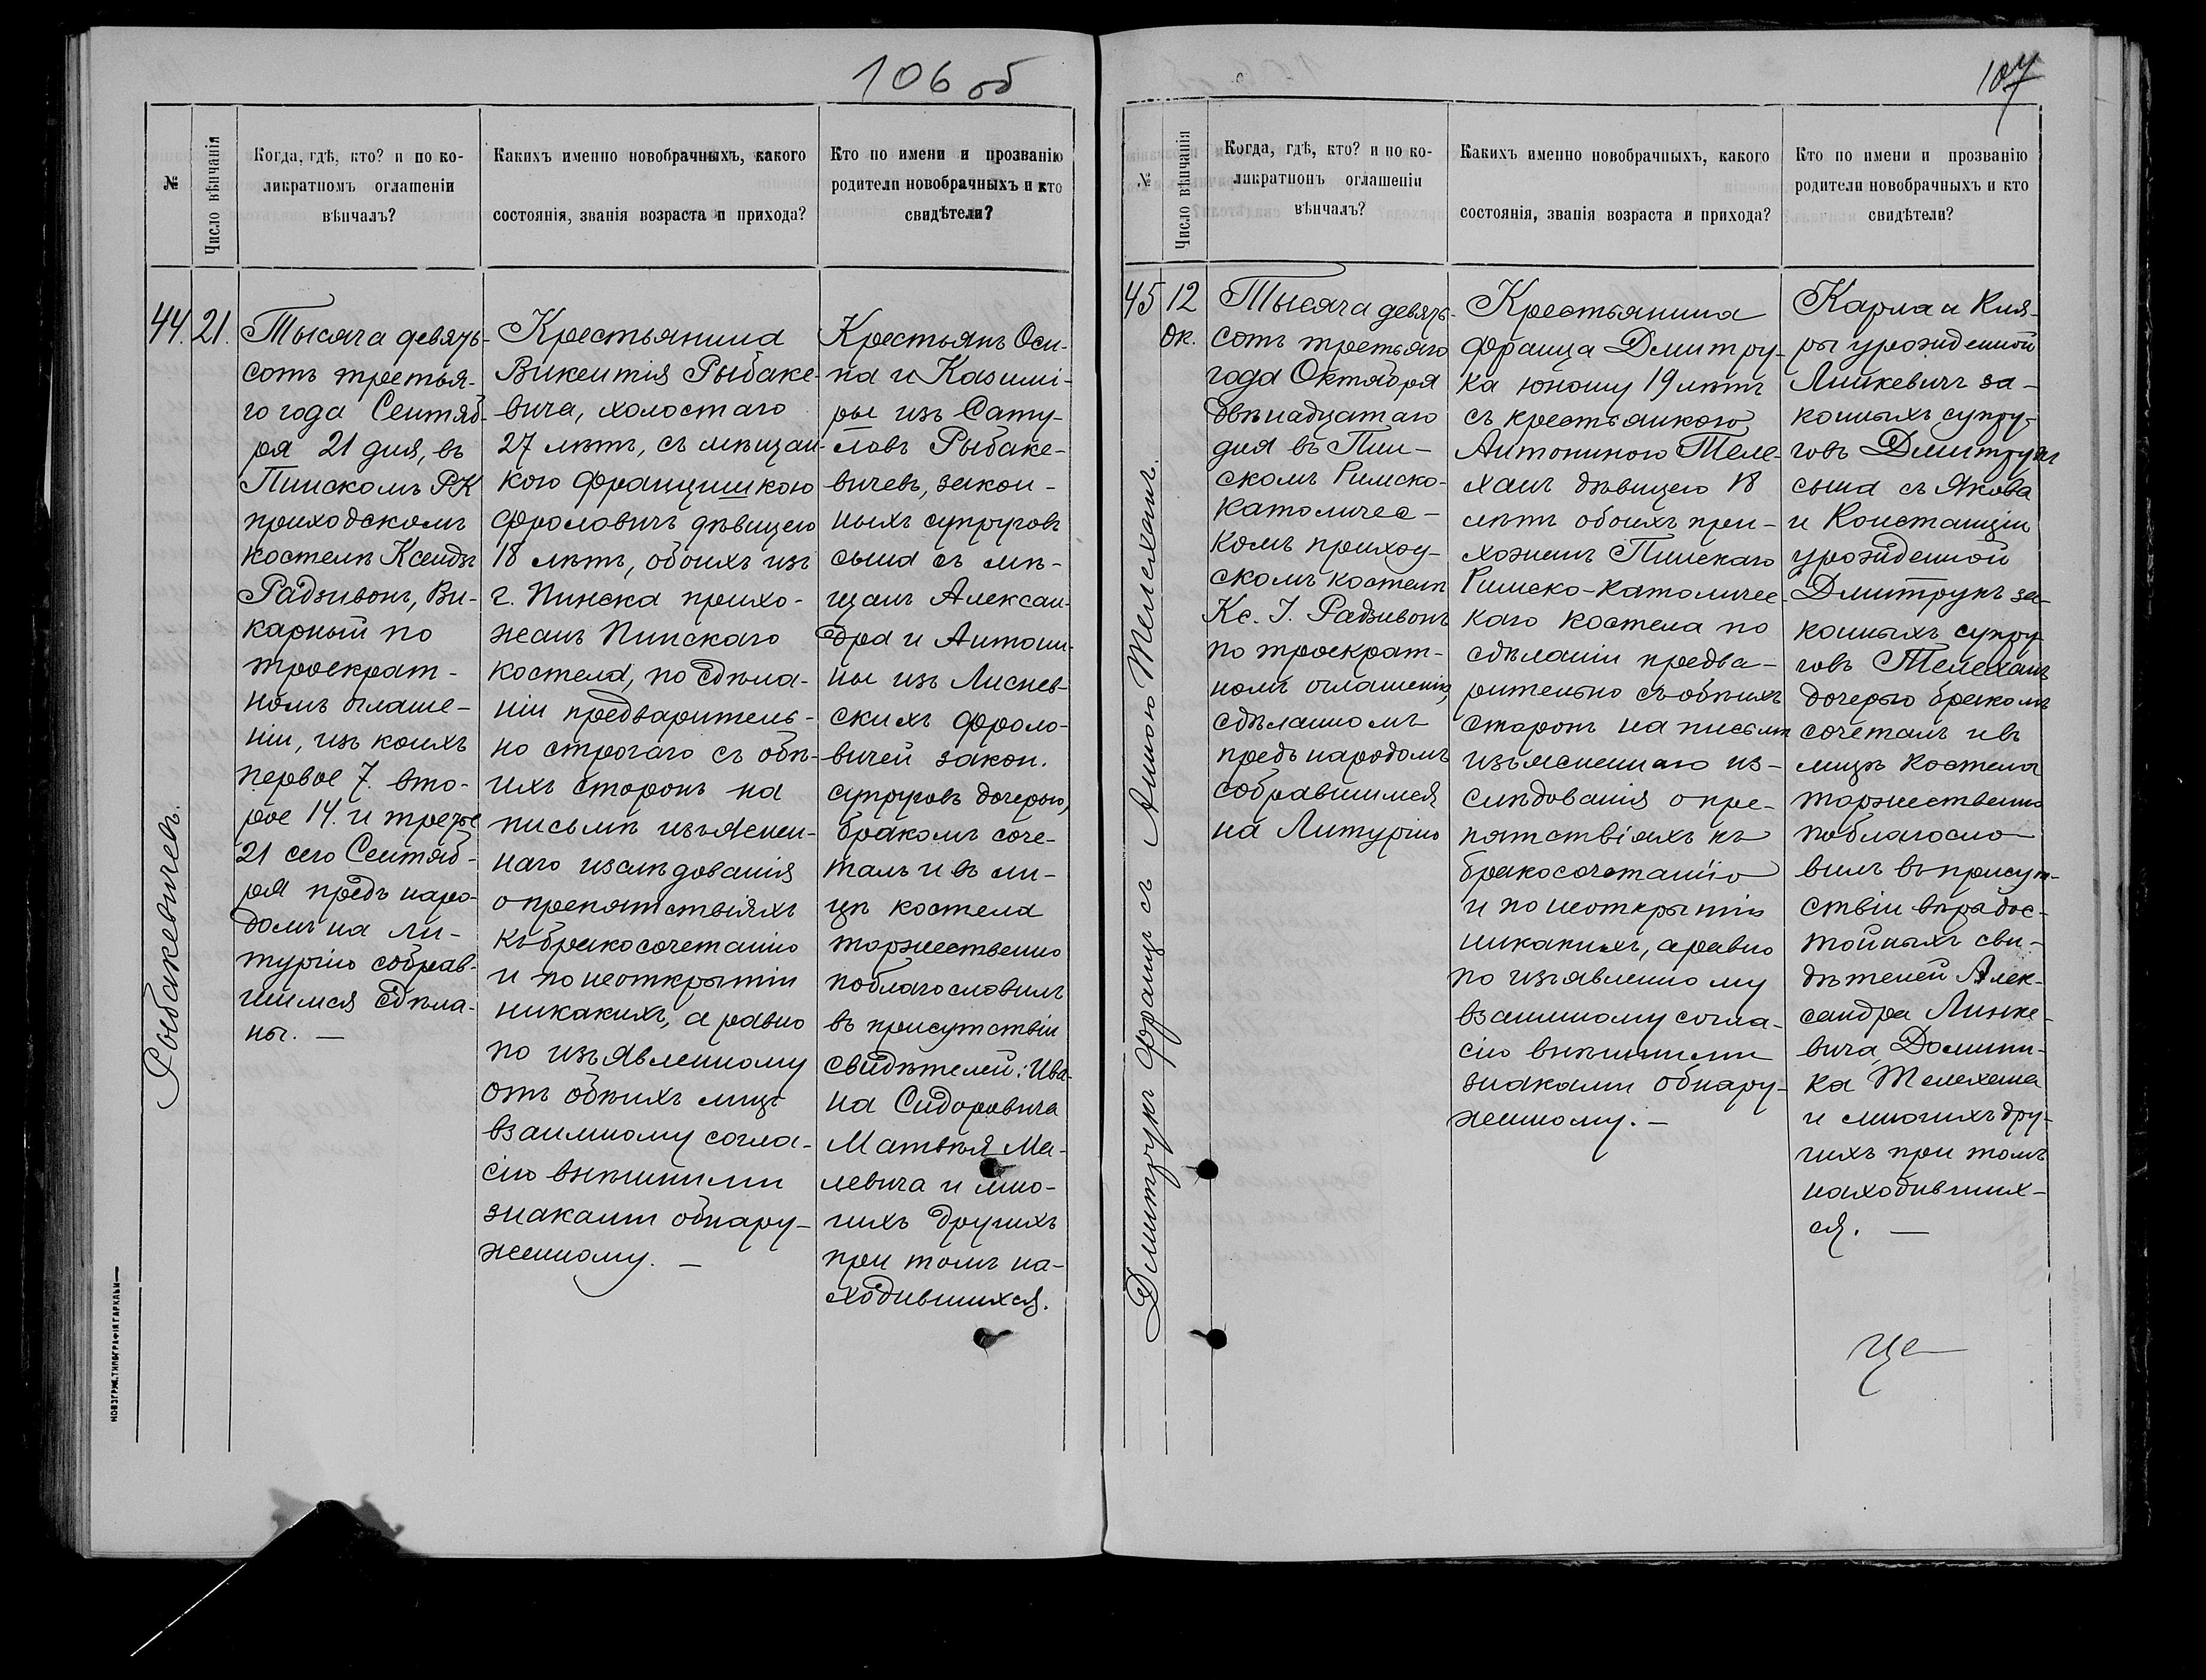 106 об
№
Число вѣнчанія
Когда, гдѣ, кто? и по ко-
ликратномъ оглашеніи
вѣнчалъ?
Какихъ именно новобрачныхъ, какого
состоянія, званія возраста и прихода?
Кто по имени и прозванію
родители новобрачныхъ и кто
свидѣтели?
44. 21.
Рыбакевичевъ.
Тысяча девять-
сотъ третья-
го года Сентяб-
ря 21 дня, въ
Пинскомъ РК
приходскомъ
костелѣ Ксендзъ
Радзивонъ, Ви-
карный по
троекрат-
номъ оглаше-
ніи, изъ коихъ
первое 7. вто-
рое 14. и третье
21 сего Сентяб-
ря предъ наро-
домъ на ли-
тургію собрав-
шимся сдѣла-
ны. —
Крестьянина
Викентія Рыбаке-
вича, холостаго
27 лѣтъ, съ мѣщан-
кою Францишкою
Фроловичъ дѣвицею
18 лѣтъ, обоихъ изъ
г. Пинска прихо-
жанъ Пинскаго
костела, по сдѣла-
ніи предваритель-
но строгаго съ обѣ-
ихъ сторонъ на
письмѣ изъяснен-
наго изслѣдованія
о препятствіяхъ
къ бракосочетанію
и по неоткрытіи
никакихъ, а равно
по изъявленному
отъ обѣихъ лицъ
взаимному согла-
сію внѣшними
знаками обнару-
женному. —
Крестьянъ Оси-
па и Казимі-
ры изъ Сату-
ловъ Рыбаке-
вичевъ, закон-
ныхъ супруговъ
сына съ мѣ-
щанъ Алексан-
дра и Антони-
ны изъ Лиснев-
скихъ Фроло-
вичей закон.
супруговъ дочерью,
бракомъ соче-
талъ и въ ли-
цѣ костела
торжественно
поблагословилъ
въ присутствіи
свидѣтелей: Ива-
на Сидоровича
Матвѣя Ма-
левича и мно-
гихъ другихъ
при томъ на-
ходившихся.
НОВЗГРУД. ТИПОГРАФІЯ ГАРКАВИ
107
№
Число вѣнчанія
Когда, гдѣ, кто? и по ко-
ликратномъ оглашеніи
вѣнчалъ?
Какихъ именно новобрачныхъ, какого
состоянія, званія возраста и прихода?
Кто по имени и прозванію
родители новобрачныхъ и кто
свидѣтели?
45 12
Ок.
Дмитрукъ Францъ съ Анною Телеханъ.
Тысяча девять-
сотъ третьяго
года Октября
двѣнадцатаго
дня въ Пин-
скомъ Римско-
Католичес-
комъ приход-
скомъ костелѣ
Кс. І. Радзивонъ
по троекрат-
номъ оглашеніи,
сдѣланномъ
предъ народомъ
собравшимся
на Литургію
Крестьянина
Франца Дмитру-
ка юношу 19 лѣтъ
съ крестьянкою
Антониною Теле-
ханъ дѣвицею 18
лѣтъ обоихъ при-
хожанъ Пинскаго
Римско-Католичес-
каго костела по
сдѣланіи предва-
рительно съ обѣихъ
сторонъ на письмѣ
изъясненнаго из-
слѣдованія о пре-
пятствіяхъ къ
бракосочетанію
и по неоткрытію
никакихъ, а равно
по изъявленному
взаимному согла-
сію внѣшними
знаками обнару-
женному. —
Карла и Кля-
ры урожденной
Линкевичъ за-
конныхъ супру-
говъ Дмитрукъ
сына съ Якова
и Констанціи
урожденной
Дмитрукъ за-
конныхъ супру-
говъ Телеханъ
дочерью бракомъ
сочеталъ и въ
лицѣ Костела
торжественно
поблагосло-
вилъ въ присут-
ствіи вѣрадос-
тойныхъ сви-
дѣтелей Алек-
сандра Линке-
вича, Домини-
ка Телехана
и многихъ дру-
гихъ при томъ
находивших-
ся. —